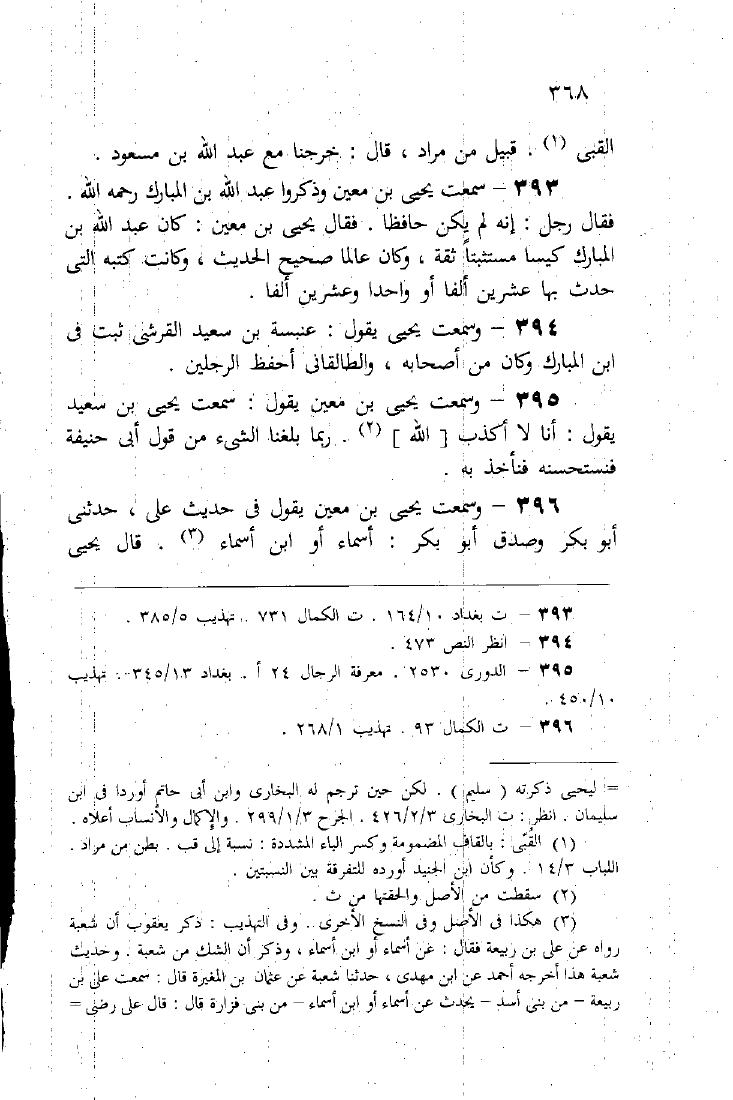 ٣٦٨
القبى (١) . قبيل من مراد ، قال : خرجنا مع عبد الله بن مسعود .
٣٩٣ – سمعت يحيى بن معين وذكروا عبد الله بن المبارك رحمه الله .
فقال رجل : إنه لم يكن حافظا . فقال يحيى بن معين : كان عبد الله بن
المبارك كيسا مستثبتاً ثقة ، وكان عالما صحيح الحديث ، وكانت كتبه التى
حدث بها عشرين ألفا أو واحدا وعشرين ألفا .
٣٩٤ – وسمعت يحيى يقول : عنبسة بن سعيد القرشى ثبت فى
ابن المبارك وكان من أصحابه ، والطالقانى أحفظ الرجلين .
٣٩٥ – وسمعت يحيى بن معين يقول : سمعت يحيى بن سعيد
يقول : أنا لا أكذب [ الله ] (٢) . ربما بلغنا الشىء من قول أبى حنيفة
فنستحسنه فنأخذ به .
٣٩٦ – وسمعت يحيى بن معين يقول فى حديث على ، حدثنى
أبو بكر وصدق أبو بكر : أسماء أو ابن أسماء (٣) . قال يحيى
٣٩٣ – ت بغداد ١٦٤/١٠ . ت الكمال ٧٣١ . تهذيب ٣٨٥/٥ .
٣٩٤ – انظر النص ٤٧٣ .
٣٩٥ – الدورى ٢٥٣٠ . معرفة الرجال ٢٤ أ . بغداد ٣٤٥/١٣ . تهذيب
٤٥٠/١٠ .
٣٩٦ – ت الكمال ٩٣ . تهذيب ٢٦٨/١ .
= ليحيى ذكرته ( سليم ) . لكن حين ترجم له البخارى وابن أبى حاتم أوردا فى ابن
سليمان . انظر : ت البخارى ٤٢٦/٢/٣ . الجرح ٢٩٩/١/٣ . والإكمال والأنساب أعلاه .
(١) القُبّى : بالقاف المضمومة وكسر الباء المشددة : نسبة إلى قب . بطن من مراد .
اللباب ١٤/٣ . وكأن ابن الجنيد أورده للتفرقة بين النسبتين .
(٢) سقطت من الأصل والحقتها من ث .
(٣) هكذا فى الأصل وفى النسخ الأخرى . وفى التهذيب : ذكر يعقوب أن شعبة
رواه عن على بن ربيعة فقال : عن أسماء أو ابن أسماء ، وذكر أن الشك من شعبة . وحديث
شعبة هذا أخرجه أحمد عن ابن مهدى ، حدثنا شعبة عن عثمان بن المغيرة قال : سمعت على بن
ربيعة – من بنى أسد – يحدث عن أسماء أو ابن أسماء – من بنى فزارة قال : قال على رضى =